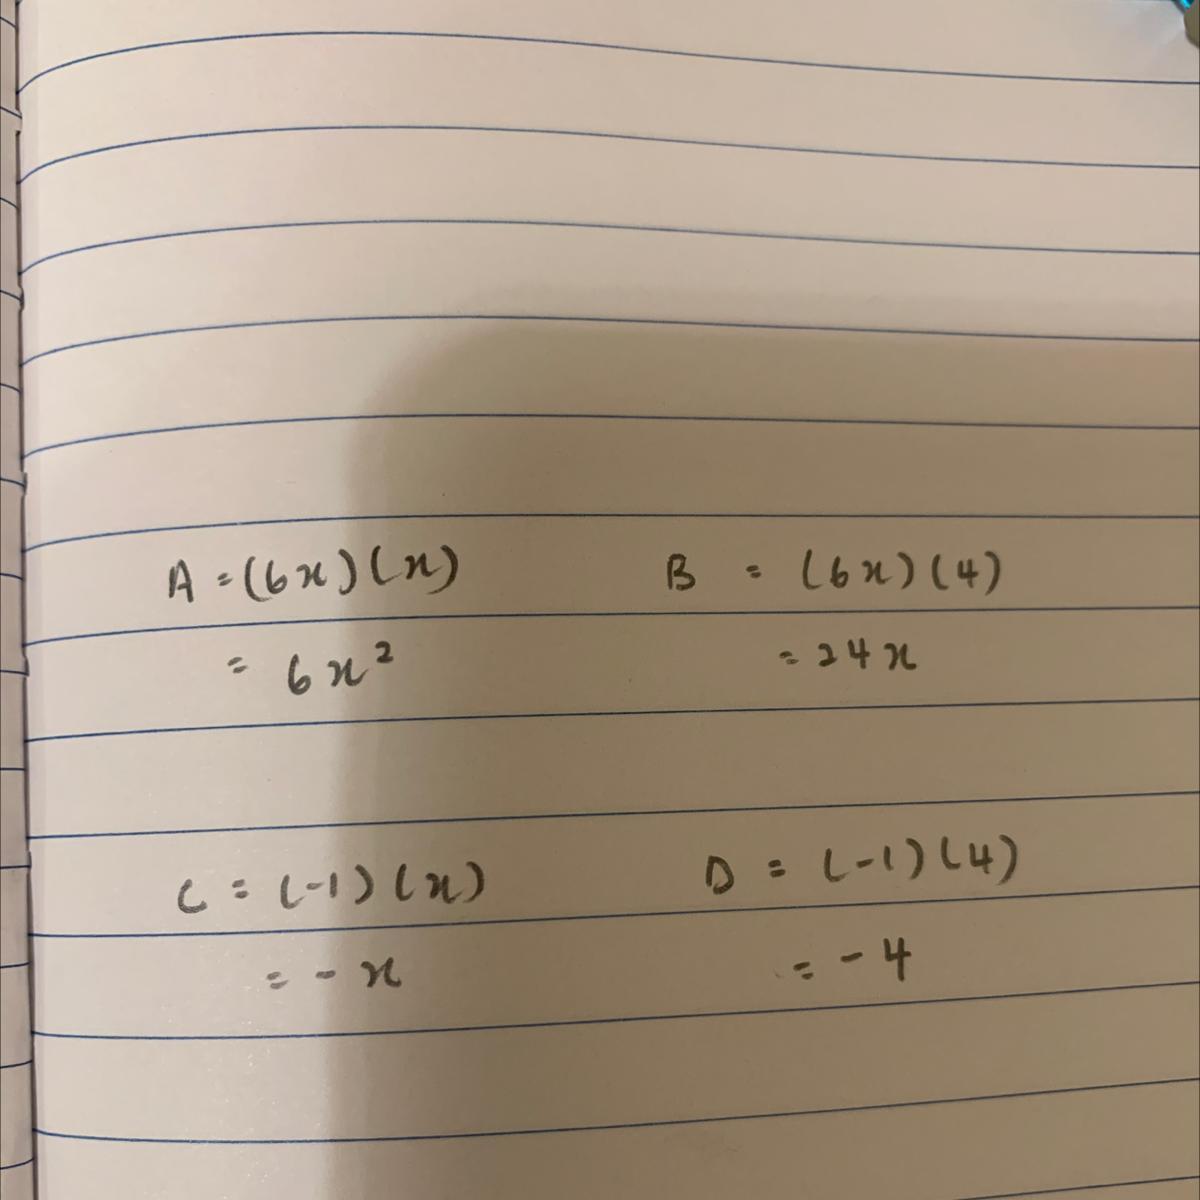 A = (6x)(x)
B = (6x)(4)
= 6x²
= 24x
C = (-1)(x)
D = (-1)(4)
= -x
= -4